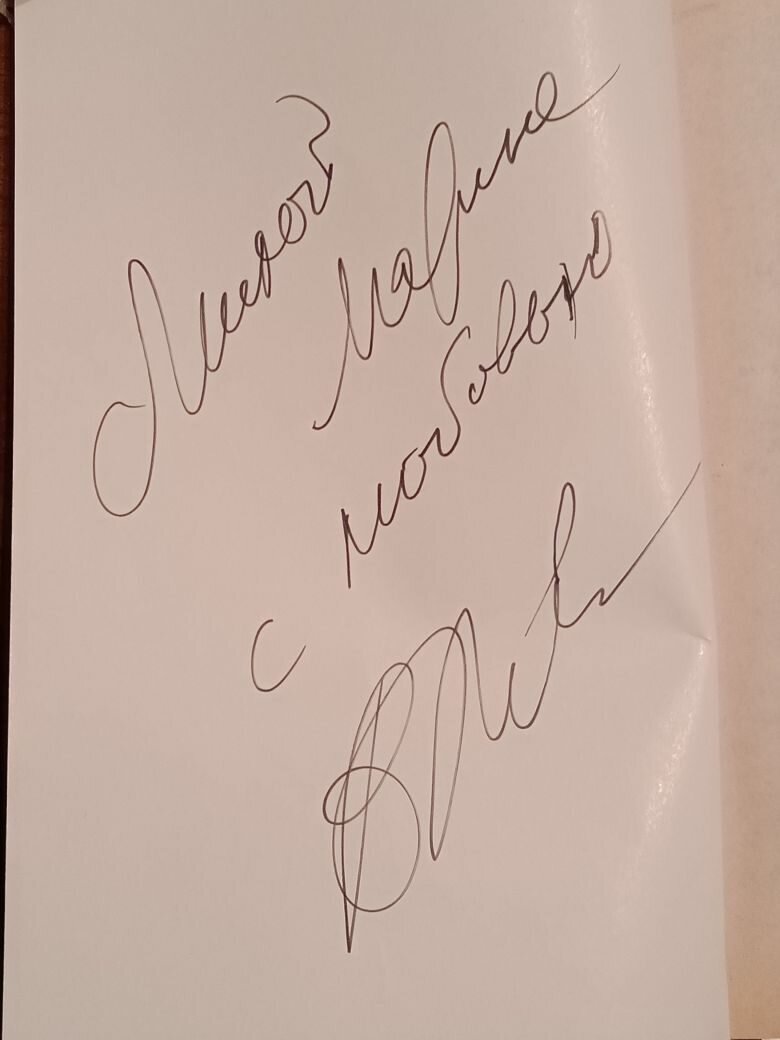 Милой
Марине
с любовью